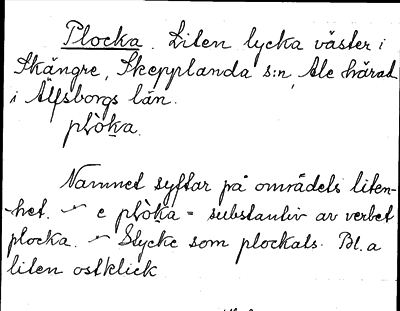 Plocka. Liten lycka väster i
Skångre, Skepplanda s:n, Ale härad
i Älfsborgs län.
plòka.
Namnet syftar på områdets liten-
het. – e plòka = substantiv av verbet
plocka. – Stycke som plockats. Bl.a
liten ostklick